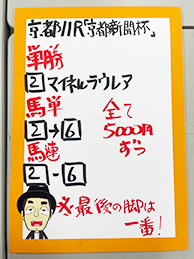 京都11R「京都新聞杯」
単勝
2 マイネルラウレア
馬単
2→6
馬連
2-6
全て
5000円
ずつ
※最後の脚は
一番!